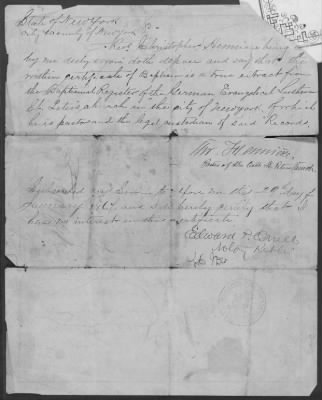 State of New York
City & County of New York
Rev. Christopher Hennicke being
by me duly sworn doth depose and say that the
within certificate of Baptism is a true extract from
the Baptismal Register of the German Evangelical Lutheran
St. Peters church in the city of New York of which
he is pastor and the legal custodian of said Records.
Pastor of the Luth. St. Peters Church
Subscribed and Sworn to before me this 20 day of
January and I do hereby certify that I
have no interest in this
Edward
Notary Public